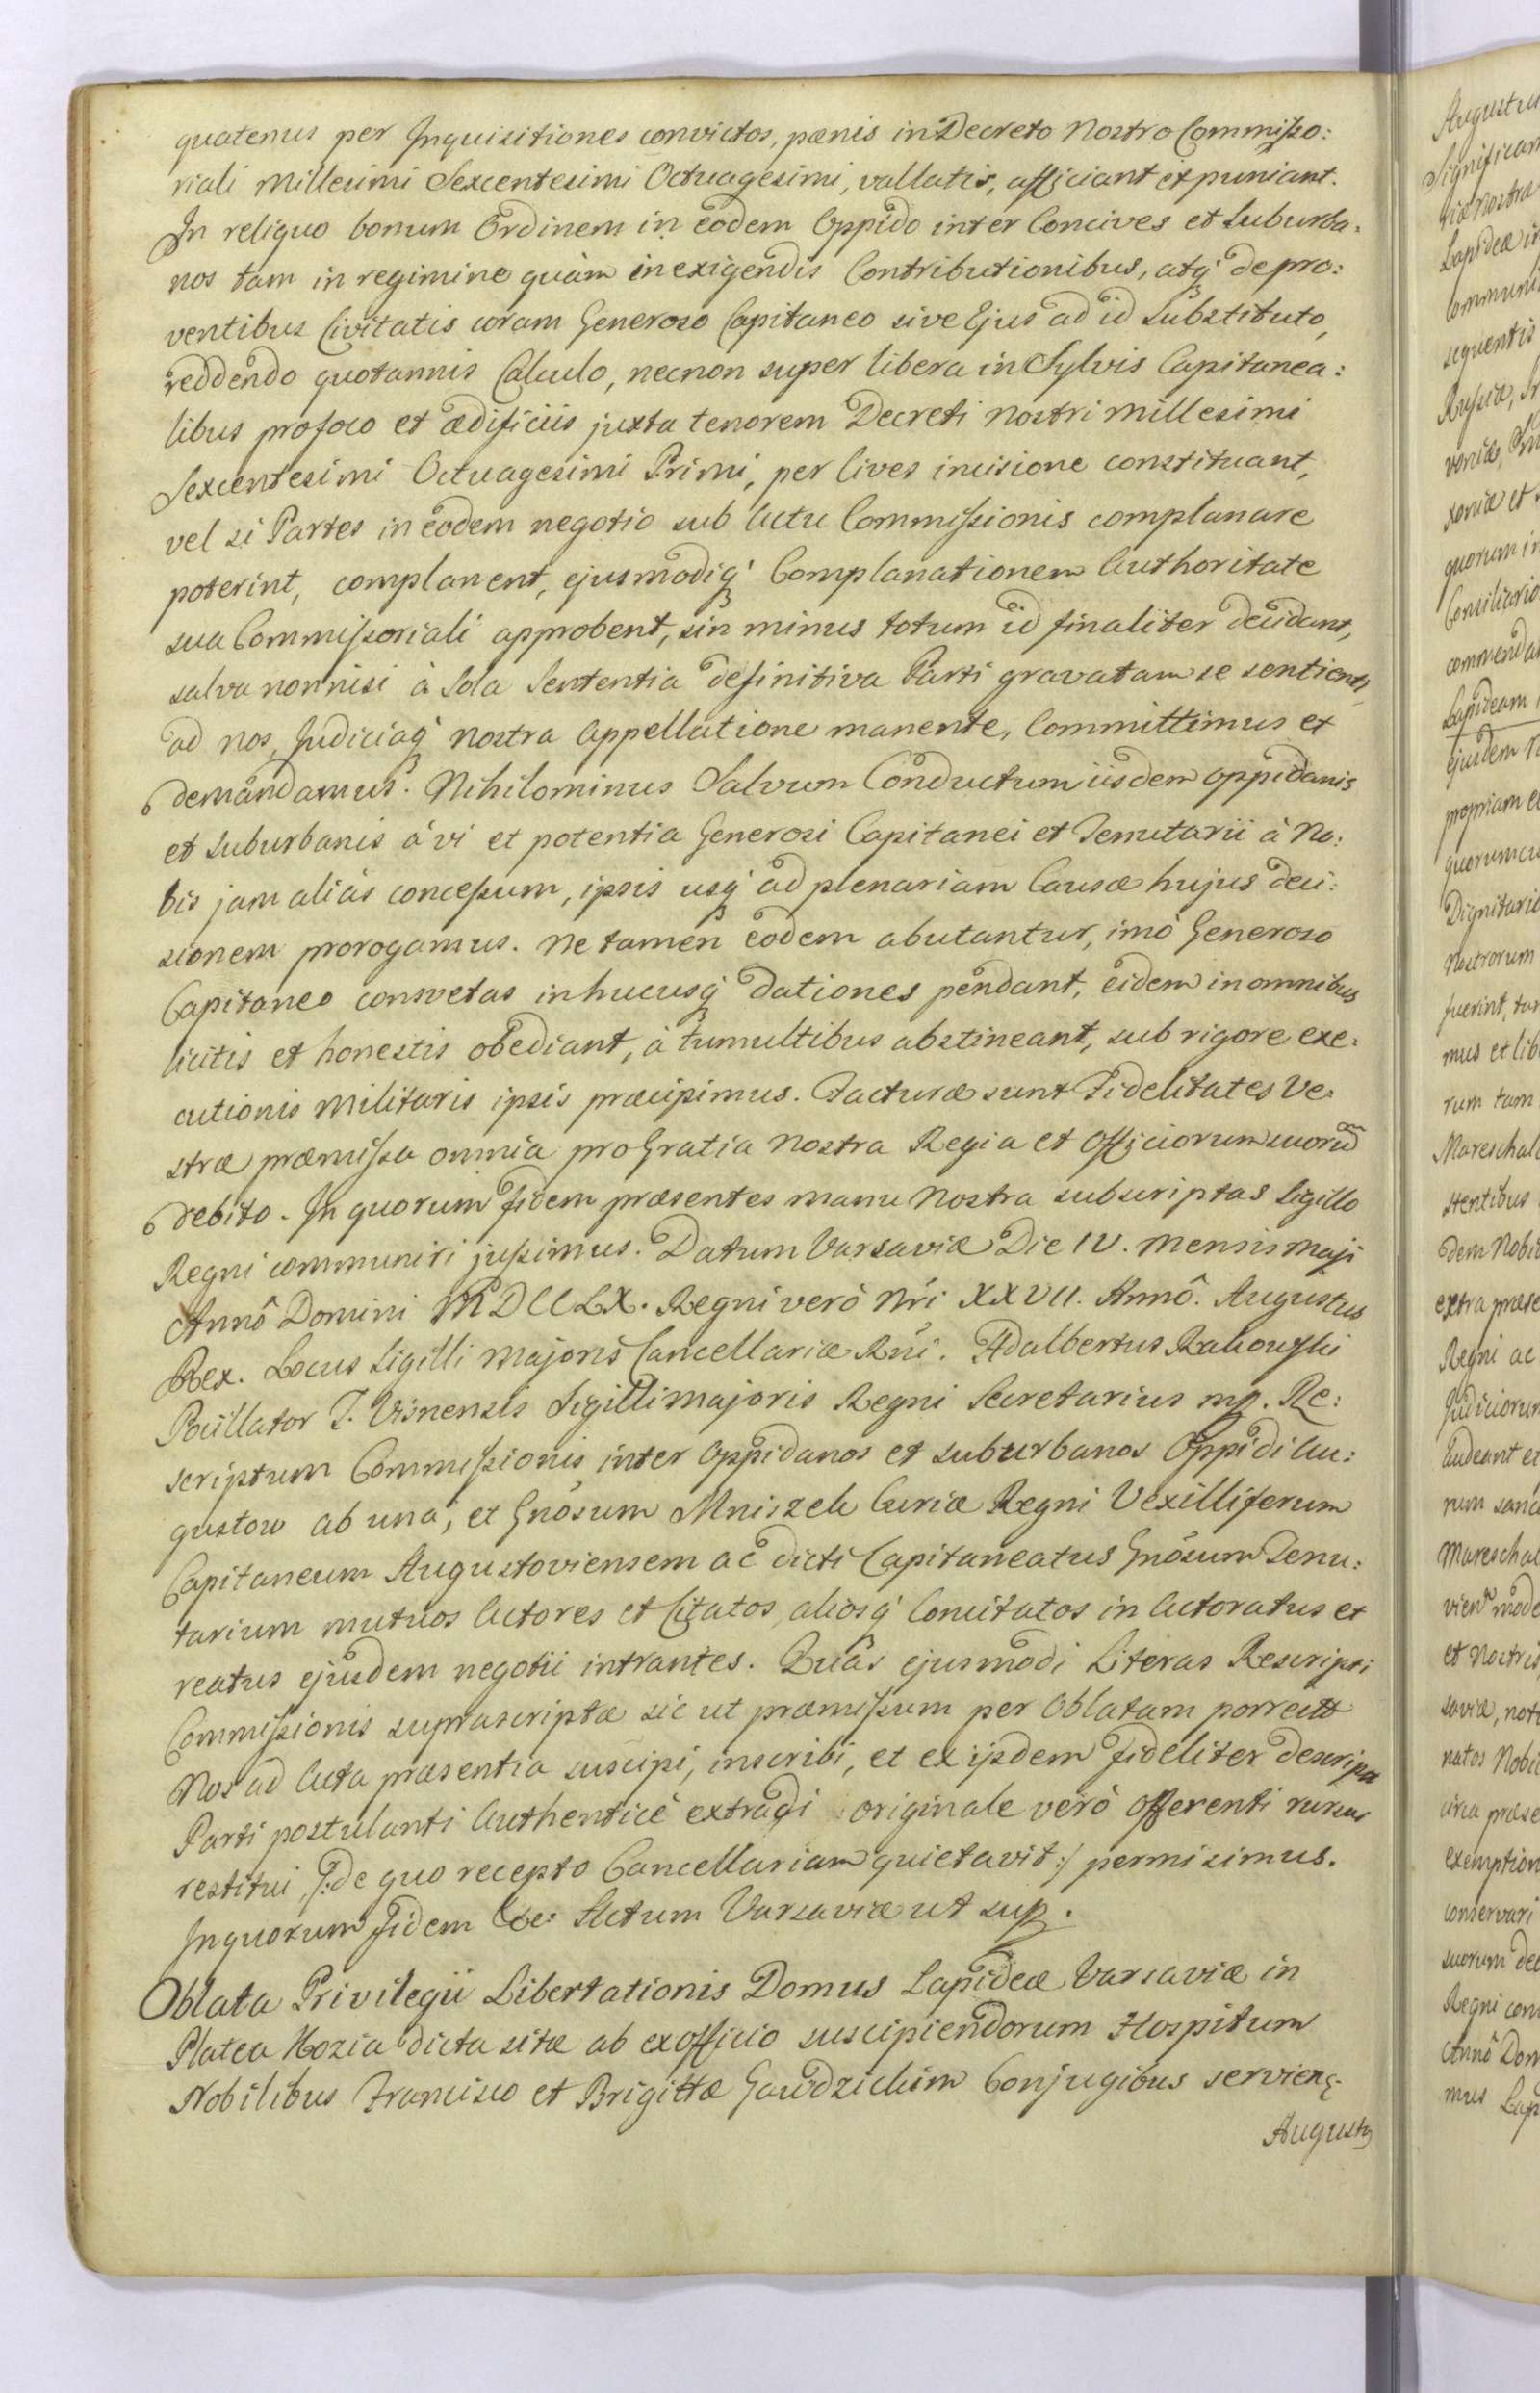 quatenus per Inquisitiones convictos, pænis in Decreto Nostro Commißo:
riali Millesimi Sexcentesimi Octuagesimi, vallatis, afficiant et puniant.
In reliquo bonum Ordinem in eodem Oppido inter Concives et Suburba:
nos tam in regimine quàm in exigendis Contributionibus, atq' de pro:
ventibus Civitatis coram Generoso Capitaneo sive Ejus ad id Substituto,
reddendo quotannis Calculo, necnon super libera in Sylvis Capitanea:
libus pro foco et ædificiis juxta tenorem Decreti Nostri Millesimi
Sexcentesimi Octuagesimi Primi, per Cives incisione constituant,
vel si Partes in eodem negotio sub Actu Commißionis complanare
poterint, complanent, ejusmodiq' Complanationem Authoritate
sua Commißoriali approbent, sin minus totum id finaliter decidant,
salva nonnisi à Sola Sententia definitiva Parti gravatam se sentienti
ad nos, Judiciaq' Nostra Appellatione manente, Committimus et
demandamus. Nihilominus Salvum Conductum iisdem oppidanis
et Suburbanis à vi et potentia Generosi Capitanei et Tenutarii à No:
bis jam aliàs conceßum, ipsis usq' ad plenariam Causæ hujus deci:
sionem prorogamus. Ne tamen eodem abutantur, imò Generoso
Capitaneo consvetas inhucusq' dationes pendant, eidem in omnibus
licitis et honestis obediant, à tumultibus abstineant, sub rigore exe:
cutionis Militaris ipsis præcipimus. Facturæ sunt Fidelitates Ve:
stræ præmißa omnia pro Gratia Nostra Regia et Officiorum suorũ
debito. In quorum fidem præsentes manu Nostra subscriptas Sigillo
Regni communiri jußimus. Datum Varsaviæ Die IV. Mensis Maji
Annô Domini MDCCLX. Regni verò Nři XXVII. Annô. Augustus
Rex. Locus Sigilli Majoris Cancellariæ Rňi. Adalbertus Rakowski
Bullator T. Visnensis Sigilli Majoris Regni Secretarius mp. Re:
scriptum Commißionis inter Oppidanos et suburbanos Oppidi Au:
gustow ab una, et Gnõsum Mniszek Curiæ Regni Vexilliferum
Capitaneum Augustoviensem ac dicti Capitaneatus Gnõsum Tenu:
tarium mutuos Actores et Citatos, aliosq' Concitatos in Actoratus et
reatus ejusdem negotii intrantes. Quas ejusmodi Literas Rescripti
Commißionis suprascriptæ sic ut præmißum per Oblatam porrectas
Nos ad Acta præsentia suscipi, inscribi, et ex ijsdem fideliter descriptas
Parti postulanti Authenticè extradi originale verò Offerenti rursus
restitui, /:de quo recepto Cancellariam quietavit:/ permisimus.
In quorum fidem &c: Actum Varsaviæ ut sup.
Oblata Privilegii Libertationis Domus Lapideæ Varsaviæ in
Platea Hozia dicta sitæ ab ex officio suscipiendorum Hospitum
Nobilibus Francisco et Brigittæ Gawdzickim Conjugibus serviens.
Augustus